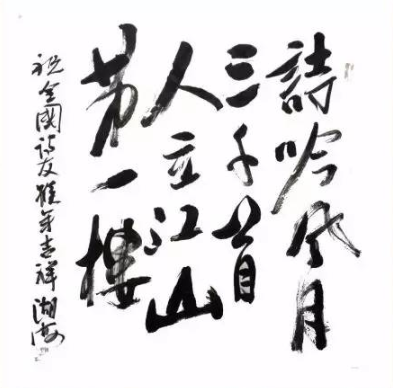 詩吟风月
三千首
人立江山
第一樓
祝全國诗友雞年吉祥湖海